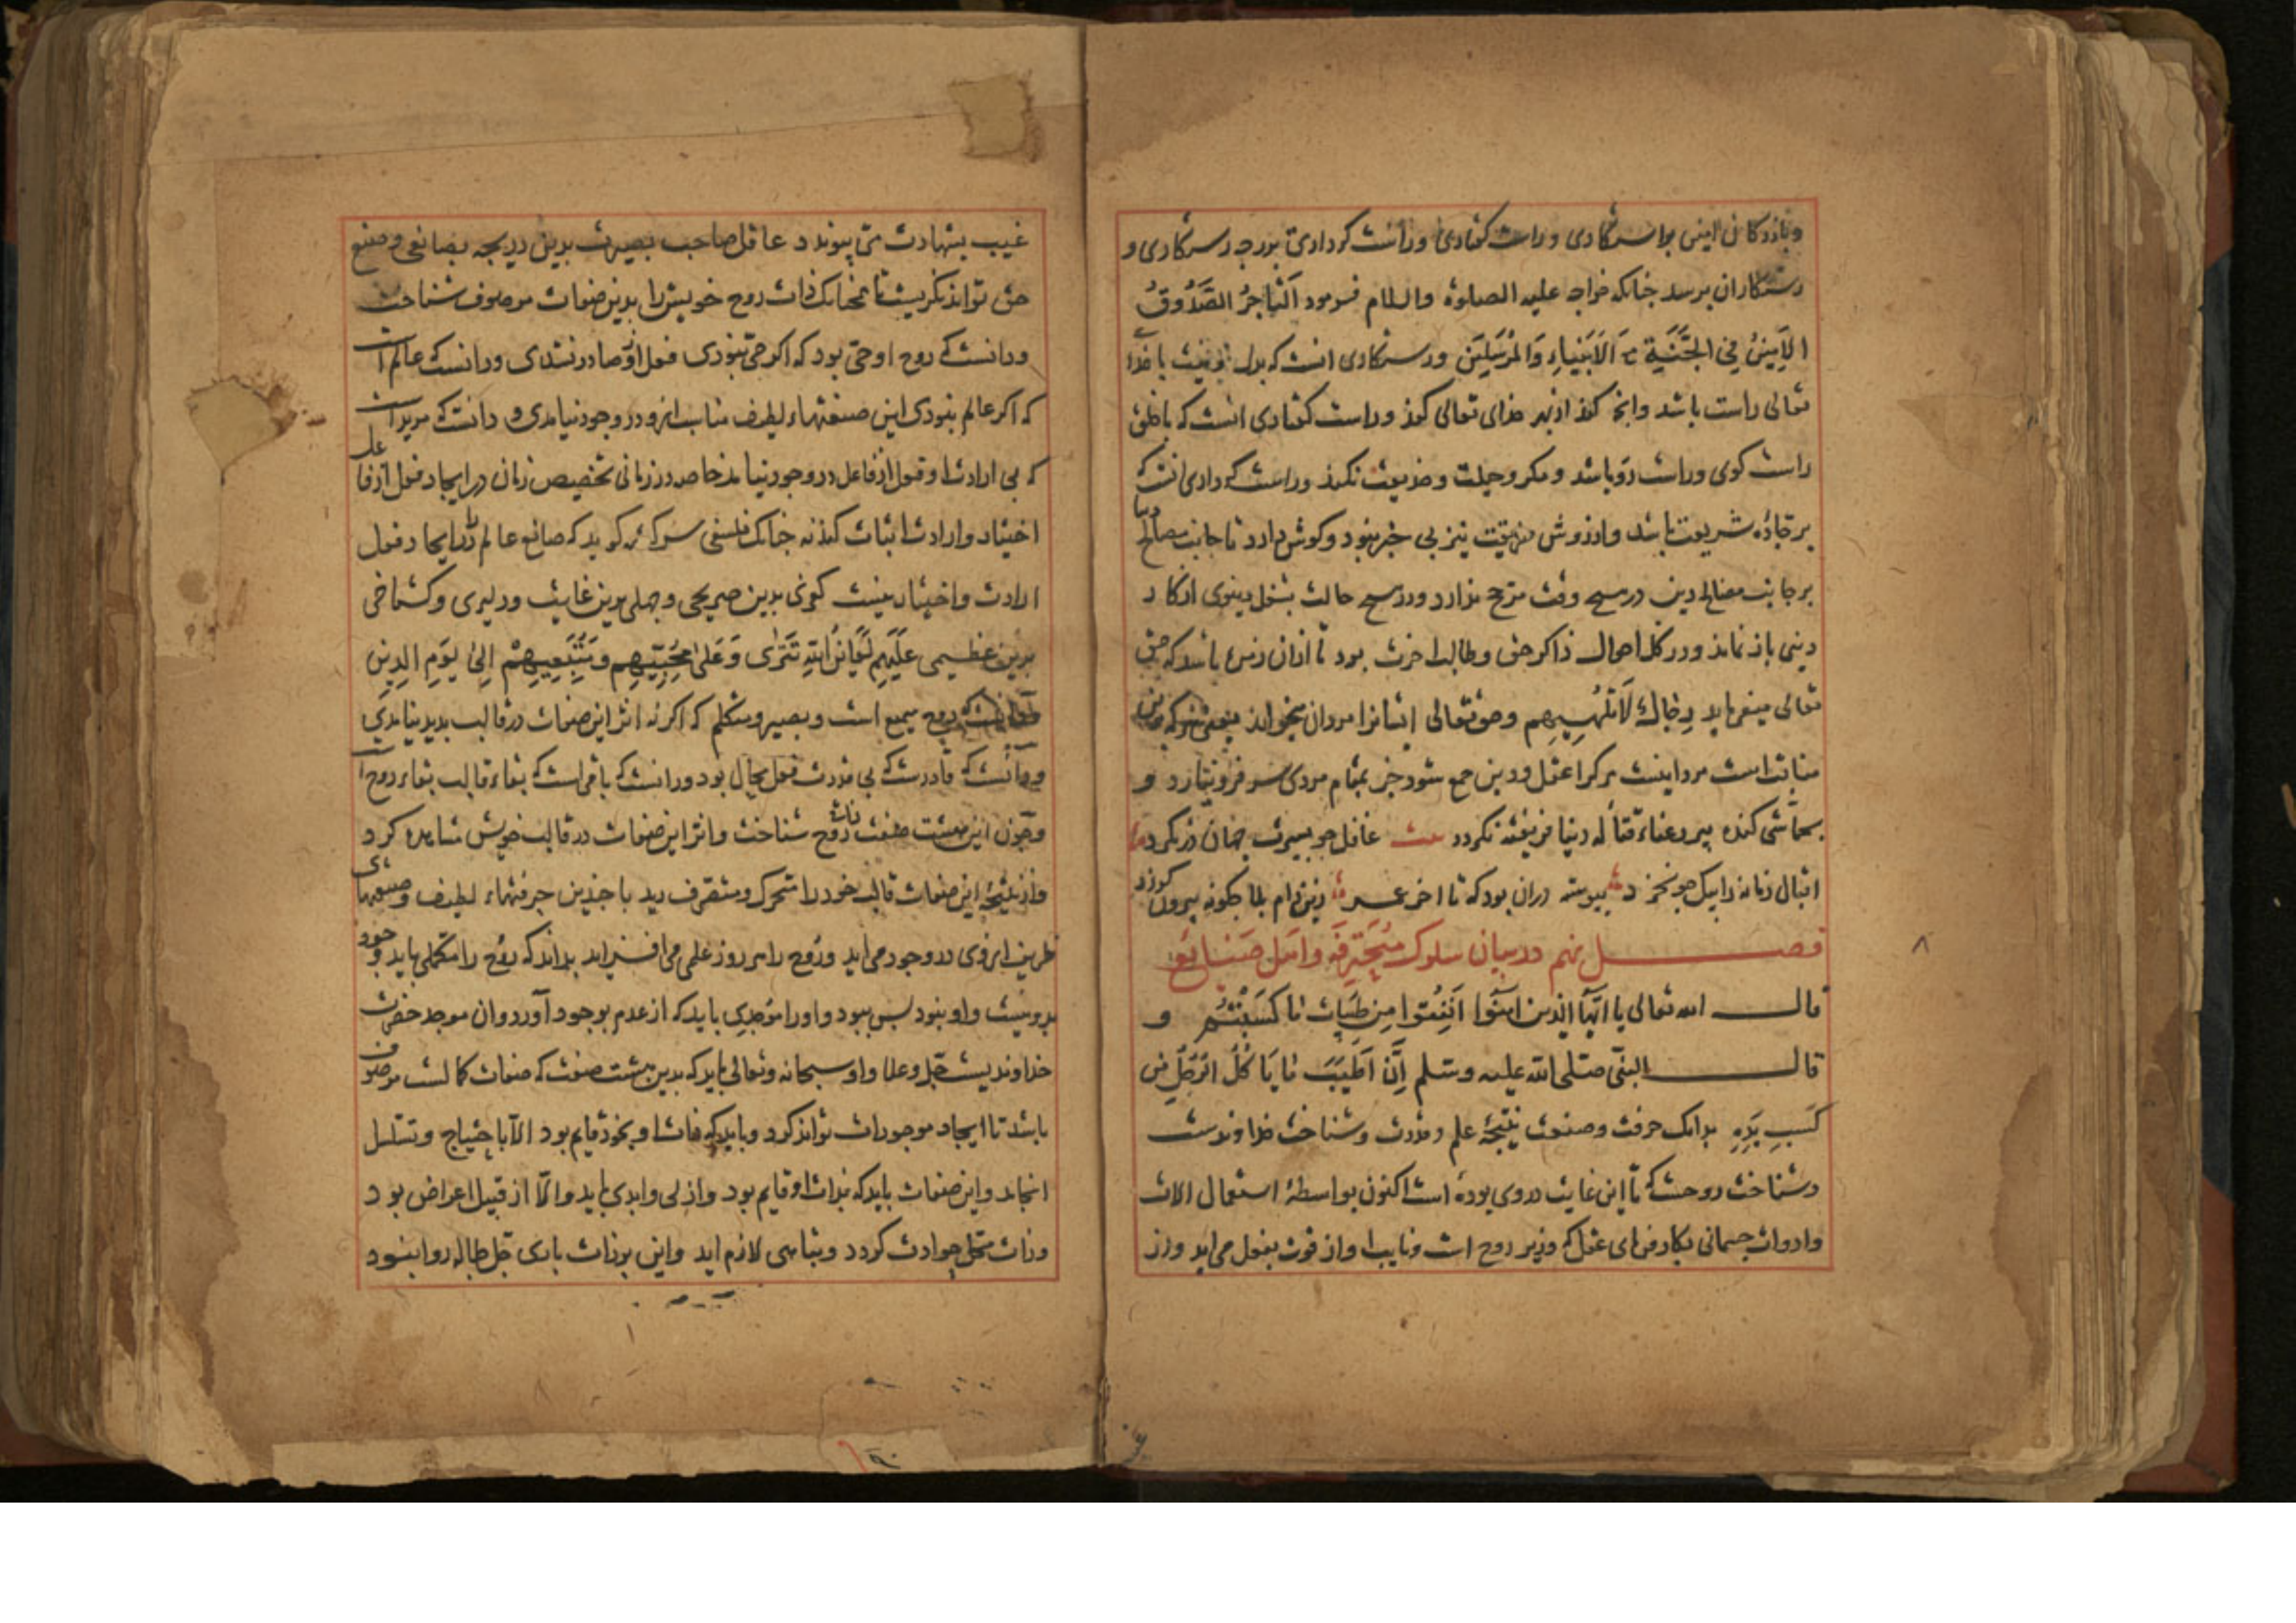 وبازرکانان امین بواسطه راستکاری و راست کفتاری و راست کرداری بدرجه رستکاری و
رستکاران برسد چنانکه خواجه علیه الصلوة والسلام فرمود اَلتّاجِرُ الصَّدُوقُ
الاَمِینُ فِی الجَنَّةِ مَعَ اَلاَنبِیاءِ وَالمُرسَلِینَ و راستکاری انست که بدل و نیت با خدا
تعالی راست باشد وانچ کند از بهر خدای تعالی کند وراست کفتاری انست که با خلق
راست کوی وراست رو باشد و مکر و حیلت و خدیعت نکند وراست کرداری انست که
بر جادّه شریعت باشد واز روش حقیقت نیز بی خبر نبود وکوش دارد تا جانب مصالح دنیا
بر جانب مصالح دین در هیچ وقت ترجیح ندارد ودر هیچ حالت بشغل دنیوی از کار
دینی باز نماند ودر کل احوال ذاکر حق وطالب اخرت بود تا ازان زمره باشد که حق
تعالی میفرماید رِجَالٌ لَاتُلهِیهِم وحق تعالی ایشانرا مردان میخواند
مرد اینست هر کرا عقل ودین جمع شود جز بمقام مردی سر فرو نیارد و
بتماشی کنده پیر رعناء قتّاله دنیا فریفته نکردد عاقل چو بسیرت جهان در نکرد
اقبال زمانه را بیک جو نخرد پیوسته دران بود که تا اخر عمر زین دام بلا چکونه بیرون کذرد
فصل نهم در بیان سلوک مُحتَرِفَه واهل صَنایع
قال الله تعالی یا اَیُّهَا الذین امَنُوا اَنفِقُوا مِن طَیِّبَاتِ مَا کَسَبتُم و
قال النبی صلی الله علیه وسلم اِنَّ اَطیَبَ مَا یَاکُلُ الرَجُلُ مِن
کَسبِ یَدِهِ بدانک حرفت وصنعت نتیجۀ علم وقدرت وشناخت خداوندست
وشناخت روحست که تا این غایت در وی بوده است اکنون بواسطۀ استعمال الات
وادوات جسمانی بکار فرمای عقل که وزیر روح است ونایب او از قوت بفعل می اید واز
غیب بشهادت می پیوندد عاقل صاحب بصیرت بدین دریچه بصانعی وصنع
حق تواند نکریست تا همچنانک ذات روح خویش را بدین صفات موصوف شناخت
ودانست که روح او حیّ بود که اکر حیّ نبودی فعل ازو صادر نشدی ودانست که عالم است
که اکر عالم نبودی این صنعتهاء لطیف مناسب ازو در وجود نیامدی و دانست که مرید است
که بی ارادت او فعل از فاعل در وجود نیاید خاصه در زمانی تخصیص زمان در ایجاد فعل از فاعل
اختیار وارادت اثبات کند نه چنانک فلسفی کوید که صانع عالم را در ایجاد فعل
ارادت واختیار نیست کفری بدین صریحی وجهلی بدین غایت ودلیری وکستاخی
بدین عظیمی عَلَیهِم لَعَائِنُ اللهِ تَترَی وَعَلَی مُحِبِّیهِم ومُتَّبِعِیهِم اِلی یَومِ الدِینِ
روح سمیع است وبصیر ومتکلم که اکر نه اثر این صفات در قالب پدید نیامدی
ودانست که قادرست که بی قدرت فعل محال بود ودانست که باقی است که بقاء قالب ببقاء روح است
وچون این هشت صفت ذات روح شناخت واثر این صفات در قالب خویش مشاهده کرد
واز نتیجۀ این صفات قالب خود را متحرک ومتصرف دید با چندین حرفتهاء لطیف وصنعتهای
ظریف از وی در وجود می اید وروح را هر روز علمی می افزاید بداند که روح را مکملی باید وجود
بدو نیست واو نبود پس ببود واورا موجدی باید که از عدم بوجود آورد وان موجد حضرت
خداوندیست جلّ وعلا واو سبحانه وتعالی باید که بدین هشت صفت که صفات کمالست موصوف
باشد تا ایجاد موجودات تواند کرد وباید که ذات او بخود قایم بود الّا باحتیاج وتسلسل
انجامد واین صفات باید که بذات او قایم بود وازلی وابدی باید والّا از قبیل اعراض بود
وذات محل حوادث کردد وتناهی لازم اید واین بر ذات باری جل جلاله روا نبود